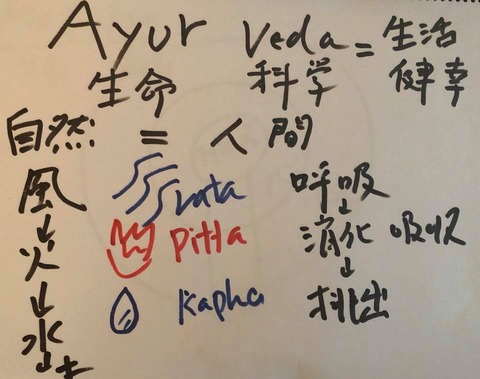 Ayur Veda = 生活
生命 科学 健幸
自然 = 人間
風 vata 呼吸
↓ ↓
火 Pitta 消化 吸収
↓ ↓
水 Kapha 排出
↓